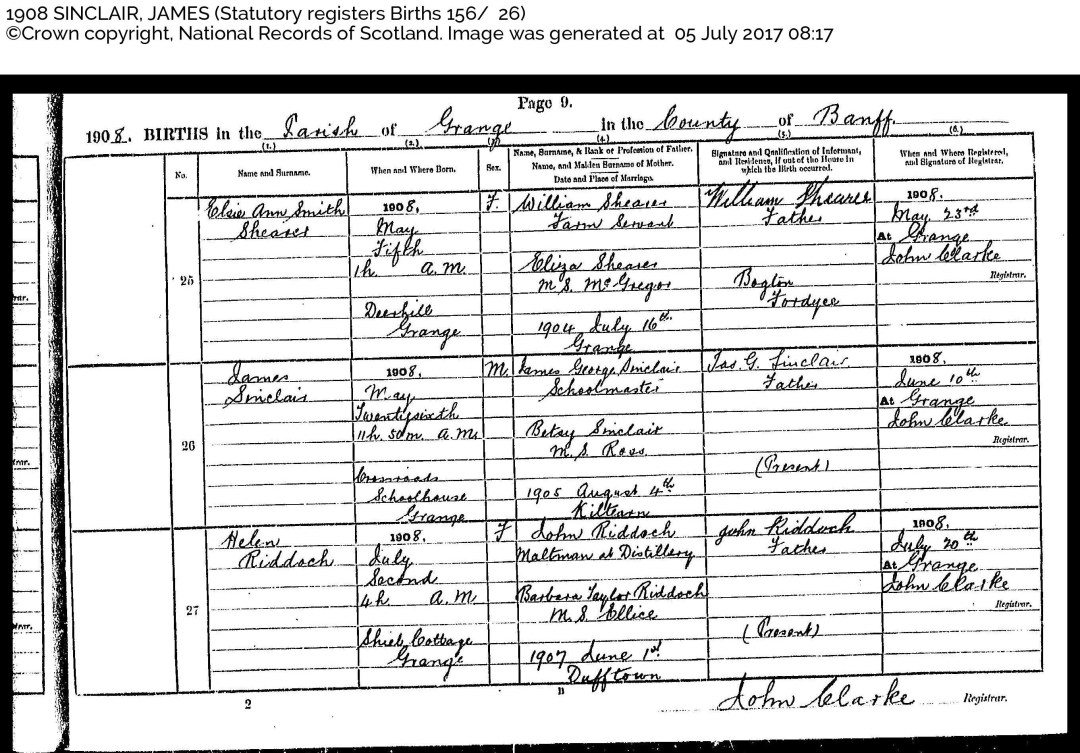 1908 SINCLAIR, JAMES (Statutory registers Births 156/ 26)
©Crown copyright, National Records of Scotland. Image was generated at 05 July 2017 08:17
Page 9.
1908. BIRTHS in the Parish of Grange in the County of Banff.
(1.) (2.) (3.) (4.) (5.) (6.)
No.
Name and Surname.
When and Where Born.
Sex.
Name, Surname, & Rank or Profession of Father.
Name, and Maiden Surname of Mother.
Date and Place of Marriage.
Signature and Qualification of Informant,
and Residence, if out of the House in
which the Birth occurred.
When and Where Registered,
and Signature of Registrar.
25
Elsie Ann Smith
Shearer
1908,
May
Fifth
1h. A.M.
Deerhill
Grange
F.
William Shearer
Farm Servant
Eliza Shearer
M.S. McGregor
1904 July 16th
Grange
William Shearer
Father
Bogton
Fordyce
1908.
May 23rd
At Grange
John Clarke
Registrar.
26
James
Sinclair
1908,
May
Twentysixth
11h. 50m. A.M.
Crossroads
Schoolhouse
Grange
M.
James George Sinclair
Schoolmaster
Betsy Sinclair
M.S. Ross
1905 August 4th
Kiltearn
Jas. G. Sinclair
Father
(Present)
1908.
June 10th
At Grange
John Clarke
Registrar.
27
Helen
Riddoch
1908.
July
Second
4h. A.M.
Shiel Cottage
Grange
F
John Riddoch
Maltman at Distillery
Barbara Taylor Riddoch
M.S. Ellice
1907 June 1st
Dufftown
John Riddoch
Father
(Present)
1908.
July 20th
At Grange
John Clarke
Registrar.
2
B
John Clarke Registrar.